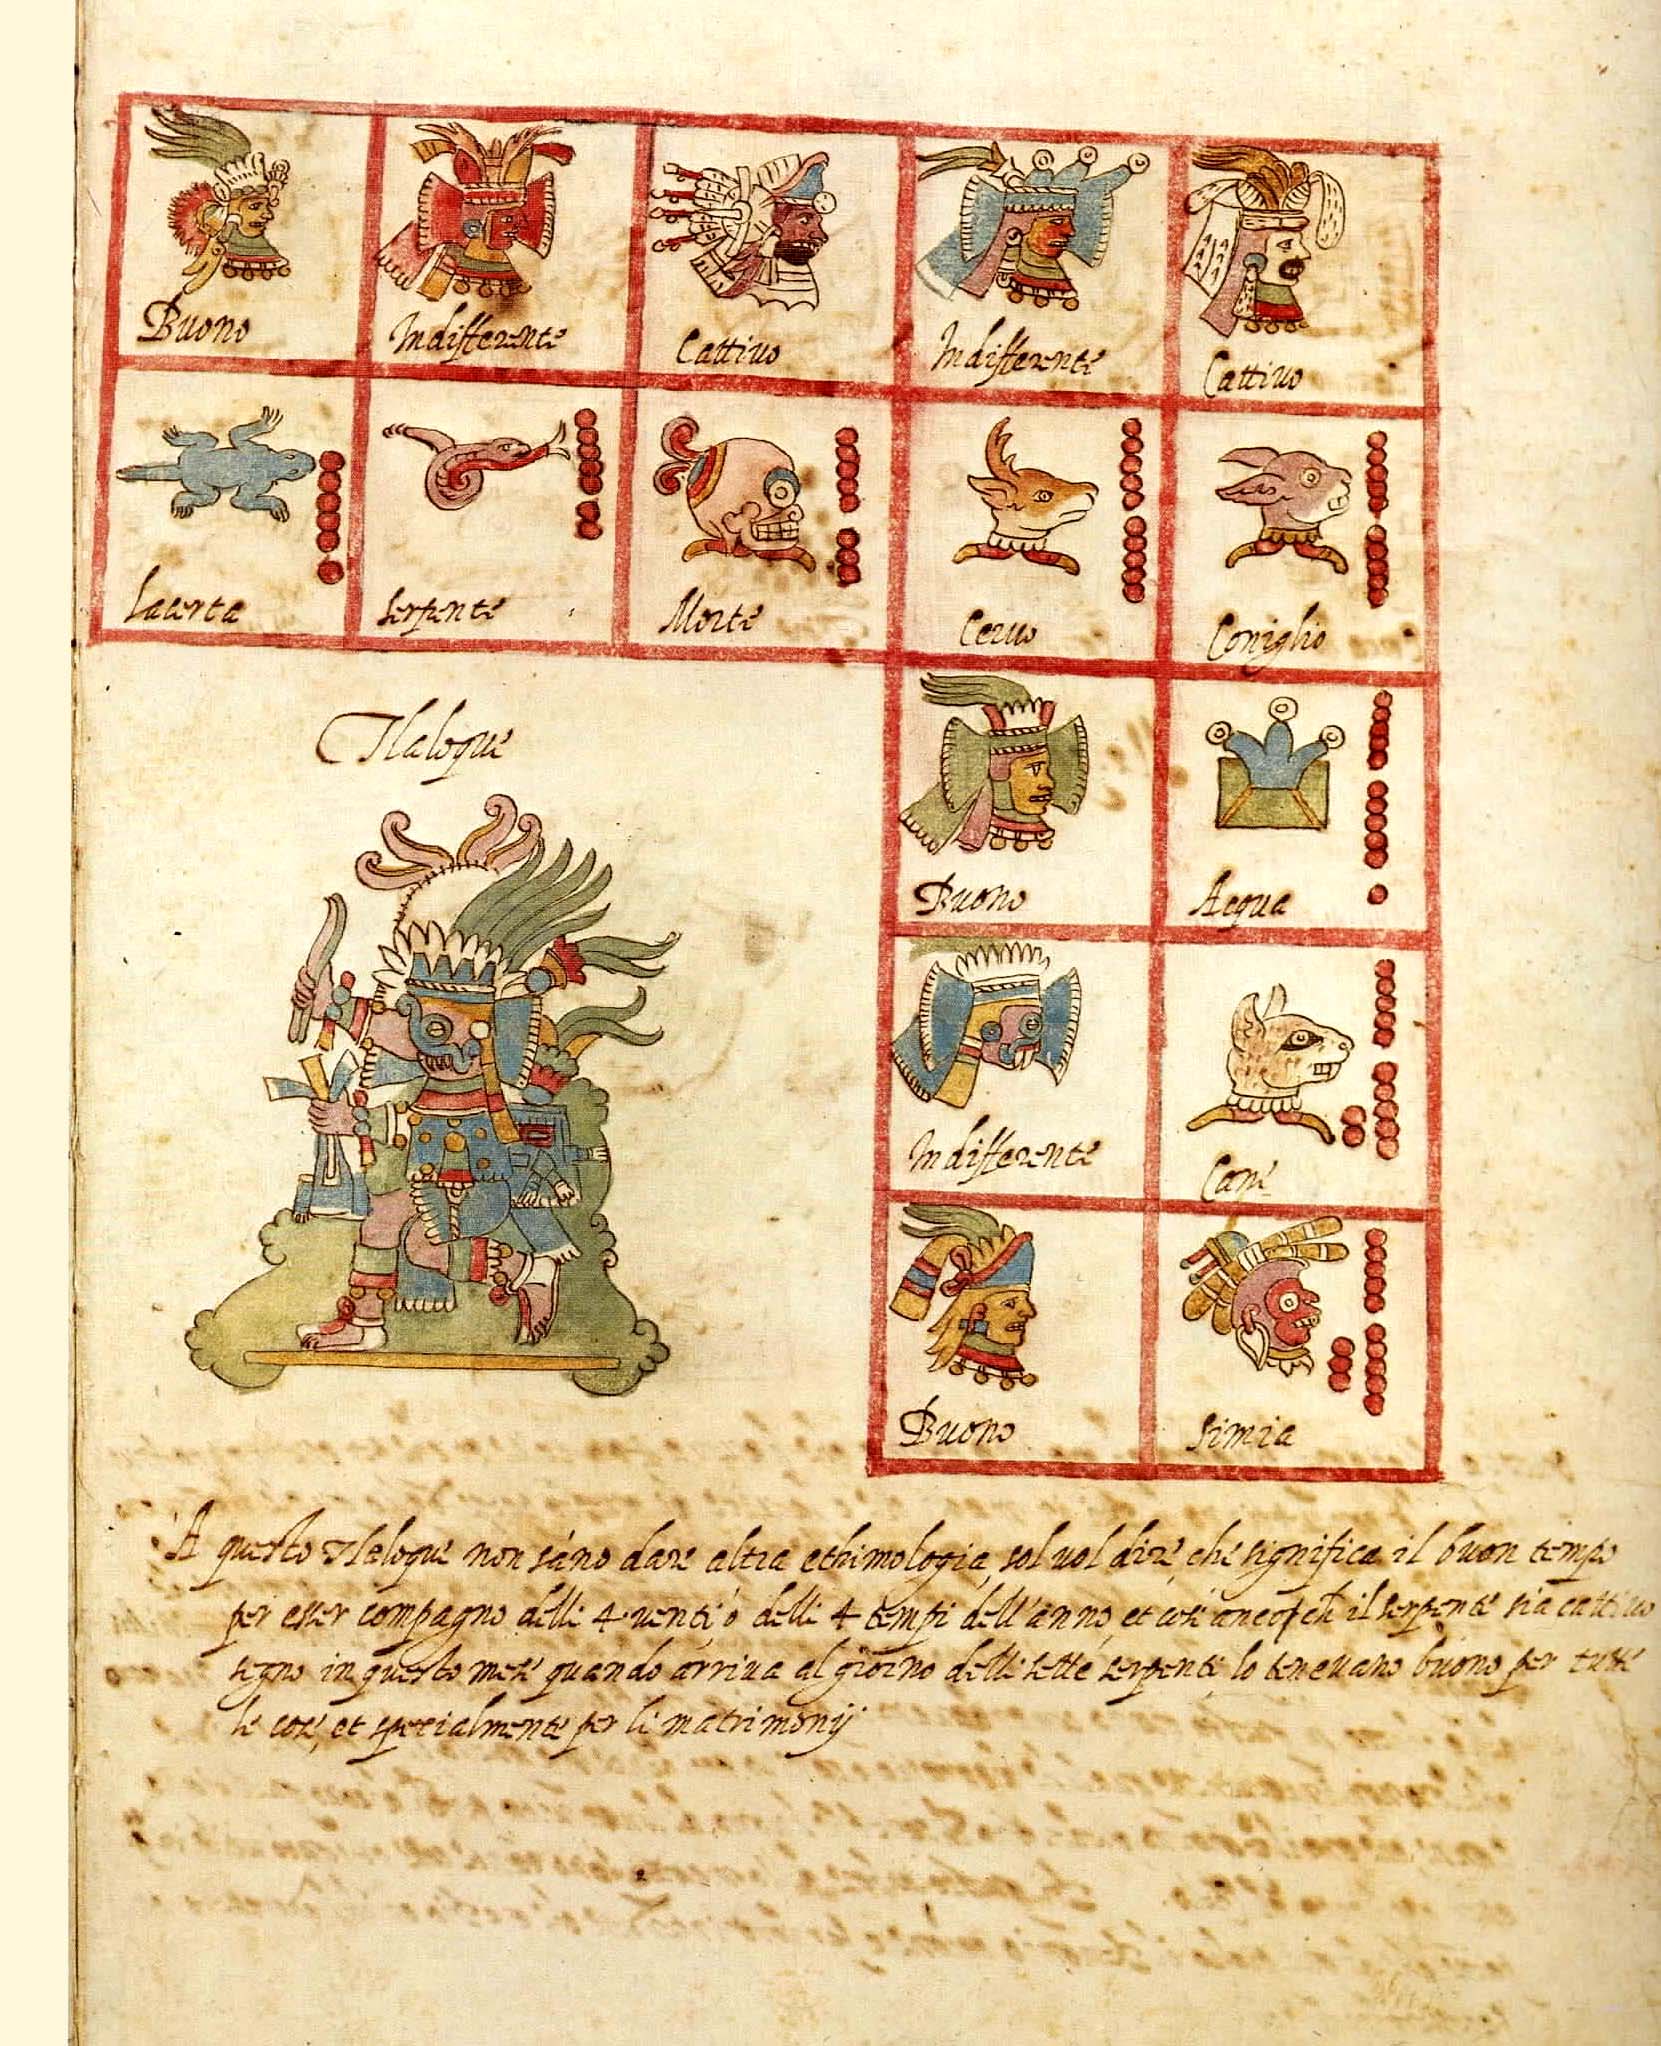 Buono Indifferente Cattiuo Indifferente Cattiuo
Lacerta Serpente Morte Ceruo Coniglio
Tlaloque
Buono Acqua
Indifferente Cane
Buono Simia
A questo Tlaloque non sano dare altra ethimologia, sol uol dire, che significa il buon tempo
per esser compagno delli 4 uenti, ò delli 4 tempi dell'anno, et cosi anco ch il serpente sia cattiuo
segno in questo mese quando arriua al giorno delli sette serpenti, lo teneuano buono per tutte
le cose, et spetialmente per li matrimonij